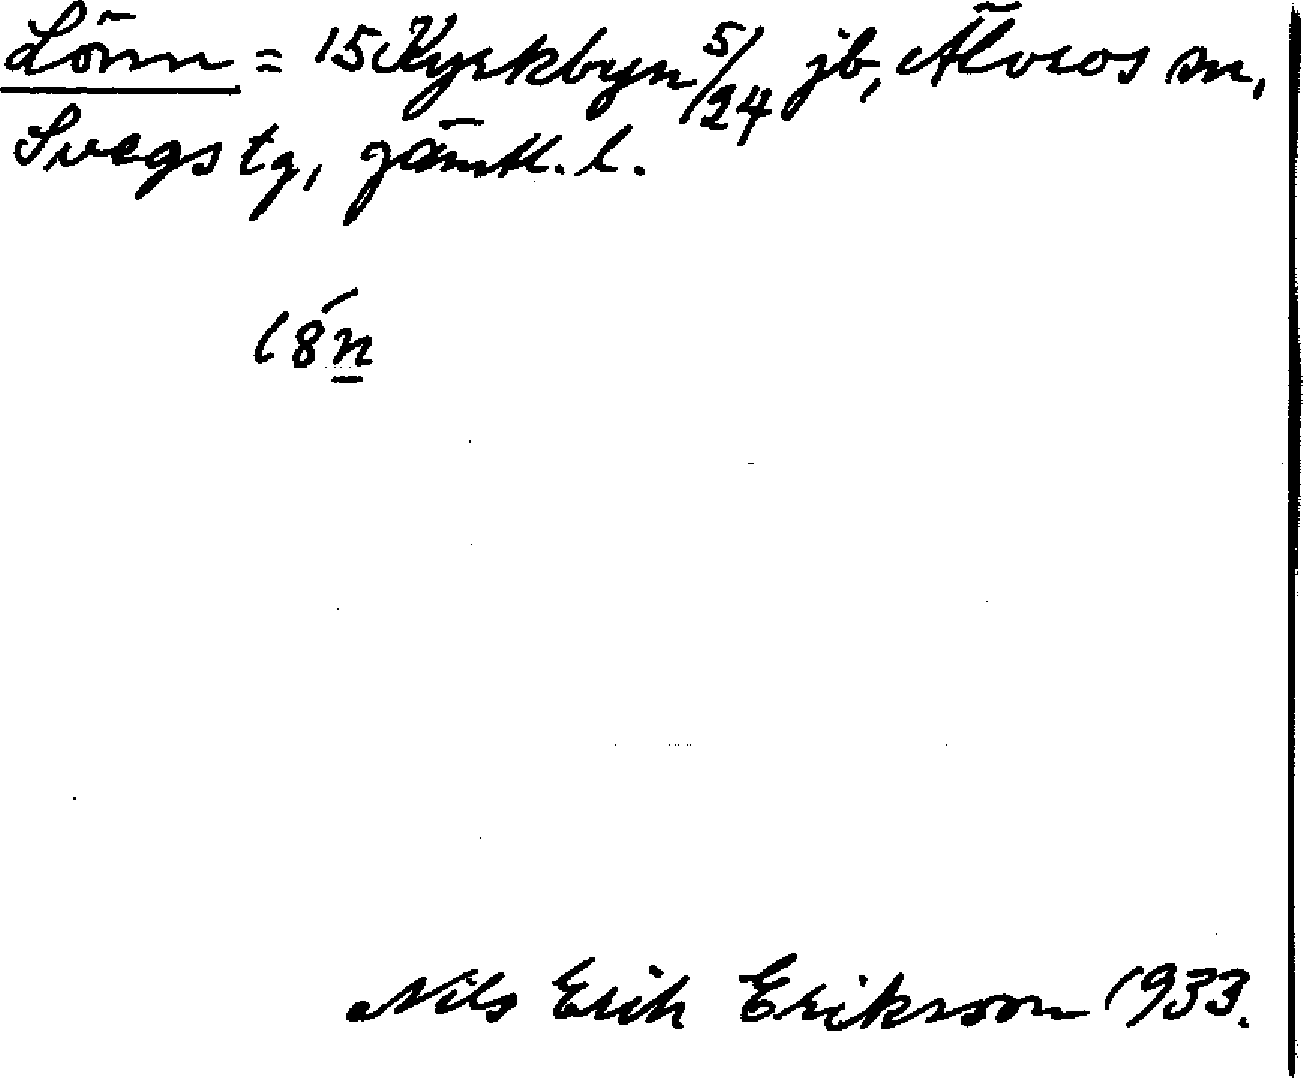 Lönn = 15 Kyrkbyn 5/24 jb, Älvros sn,
Svegs tg, Jämtl. l.
Nils Erik Eriksson 1933.